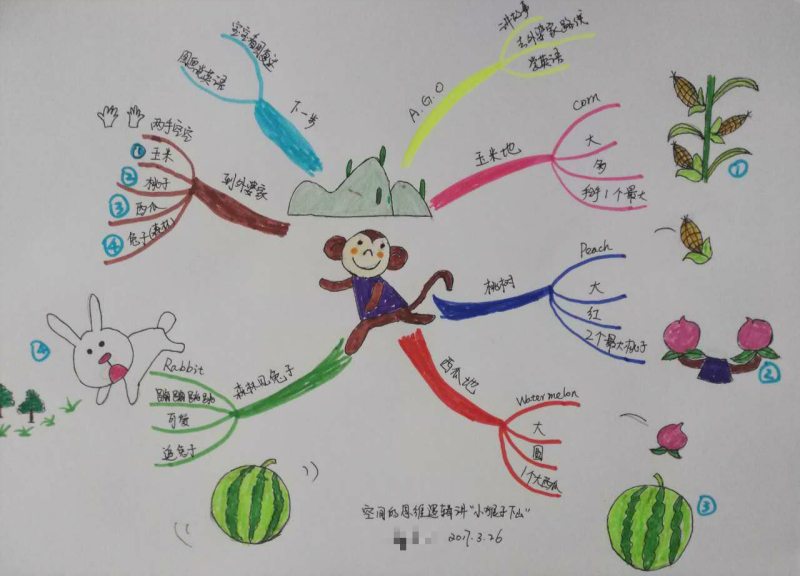 A.G.O
讲故事
去外婆家路线
学英语
玉米地
corn
大
多
掰1个最大
①
桃树
Peach
大
红
2个最大桃子
②
西瓜地
Watermelon
大
圆
1个大西瓜
③
森林见兔子
Rabbit
蹦蹦跳跳
可爱
追兔子
④
到外婆家
两手空空
① 玉米
② 桃子
③ 西瓜
④ 兔子(森林)
下一步
图思维英语
空间的思维逻辑讲"小猴子下山"
2017.3.26